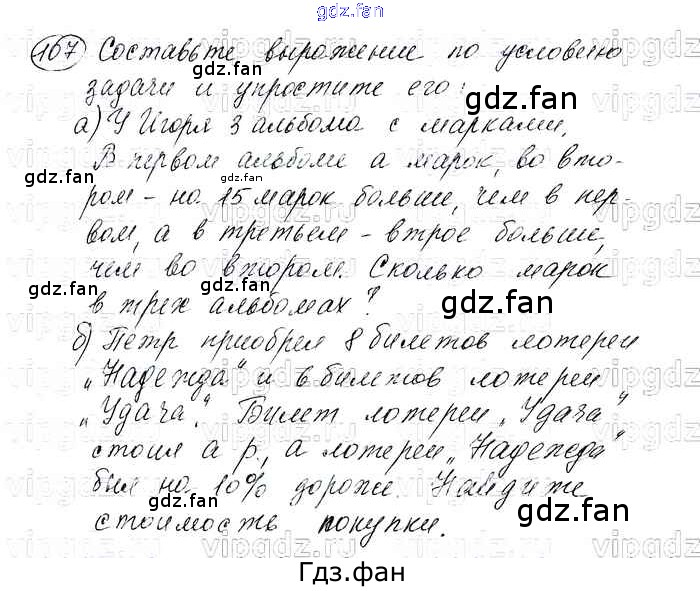 gdz.fan
167 Составьте выражение по условию
gdz.fan
задачи и упростите его:
gdz.fan
а) У Игоря 3 альбома с марками.
В первом альбоме а марок, во вто-
gdz.fan
ром – на 15 марок больше, чем в пер-
gdz.fan
вом, а в третьем – втрое больше,
чем во втором. Сколько марок
gdz.fan
gdz.fan
в трех альбомах?
б) Петр приобрел 8 билетов лотереи
gdz.fan
„Надежда“ и 6 билетов лотереи
„Удача“. Билет лотереи „Удача“
gdz.fan
стоил а р., а лотереи „Надежда“
был на 10% дороже. Найдите
gdz.fan
gdz.fan
стоимость покупки.
Гдз.фан